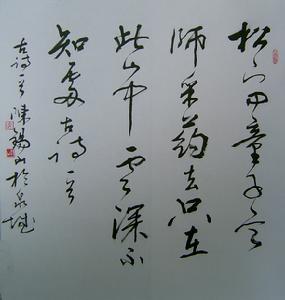 松下问童子言
師采药去只在
此山中雲深不
知處古诗一首
古诗一首陳錫山於泉城